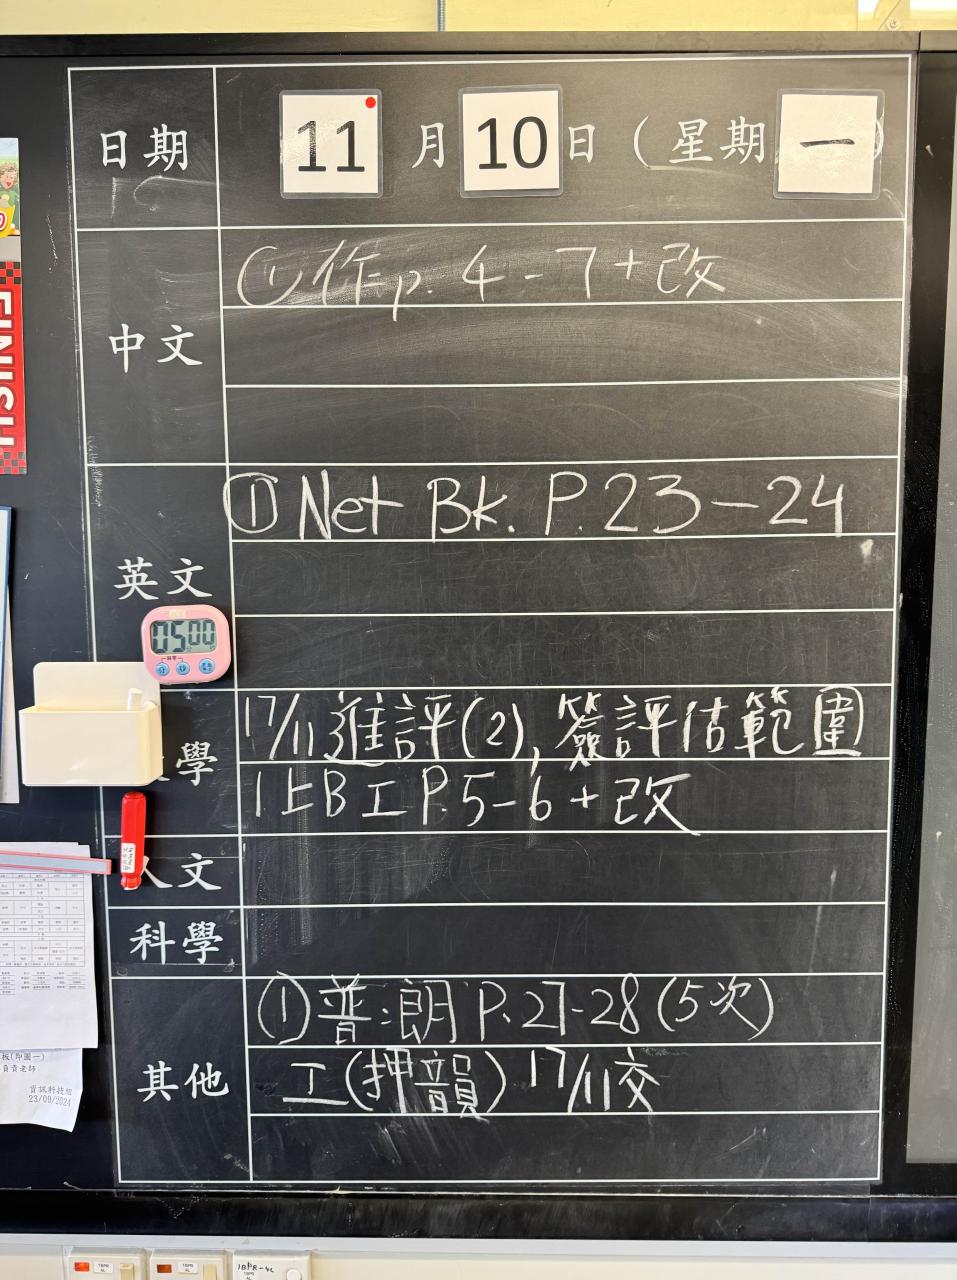 日期 11 月 10 日 (星期 一 )
中文
① 作 p. 4 - 7 + 改
英文
① Net Bk. P. 23 - 24
05 00
學
17/11 進評(2), 簽評估範圍
1. 上B工 P. 5 - 6 + 改
人文
科學
其他
① 普:朗 P. 27-28 (5次)
工(押韻) 17/11交
FINISH
板(即圖一)
負責老師
資訊科技組
23/09/2024
1BPR-4L